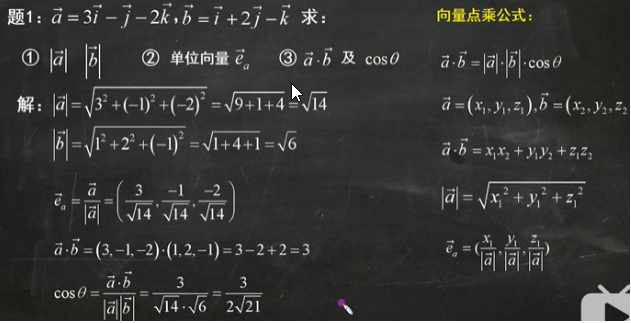 题1: a⃗ = 3i⃗ − j⃗ − 2k⃗, b⃗ = i⃗ + 2j⃗ − k⃗ 求:
① |a⃗| |b⃗| ② 单位向量 e⃗ₐ ③ a⃗·b⃗ 及 cosθ
解: |a⃗| = √(3² + (−1)² + (−2)²) = √(9+1+4) = √14
|b⃗| = √(1² + 2² + (−1)²) = √(1+4+1) = √6
e⃗ₐ = a⃗/|a⃗| = (3/√14, −1/√14, −2/√14)
a⃗·b⃗ = (3,−1,−2)·(1,2,−1) = 3−2+2 = 3
cosθ = a⃗·b⃗/|a⃗||b⃗| = 3/(√14·√6) = 3/(2√21)
向量点乘公式:
a⃗·b⃗ = |a⃗|·|b⃗|·cosθ
a⃗ = (x₁, y₁, z₁), b⃗ = (x₂, y₂, z₂
a⃗·b⃗ = x₁x₂ + y₁y₂ + z₁z₂
|a⃗| = √(x₁² + y₁² + z₁²)
e⃗ₐ = (x₁/|a⃗|, y₁/|a⃗|, z₁/|a⃗|)